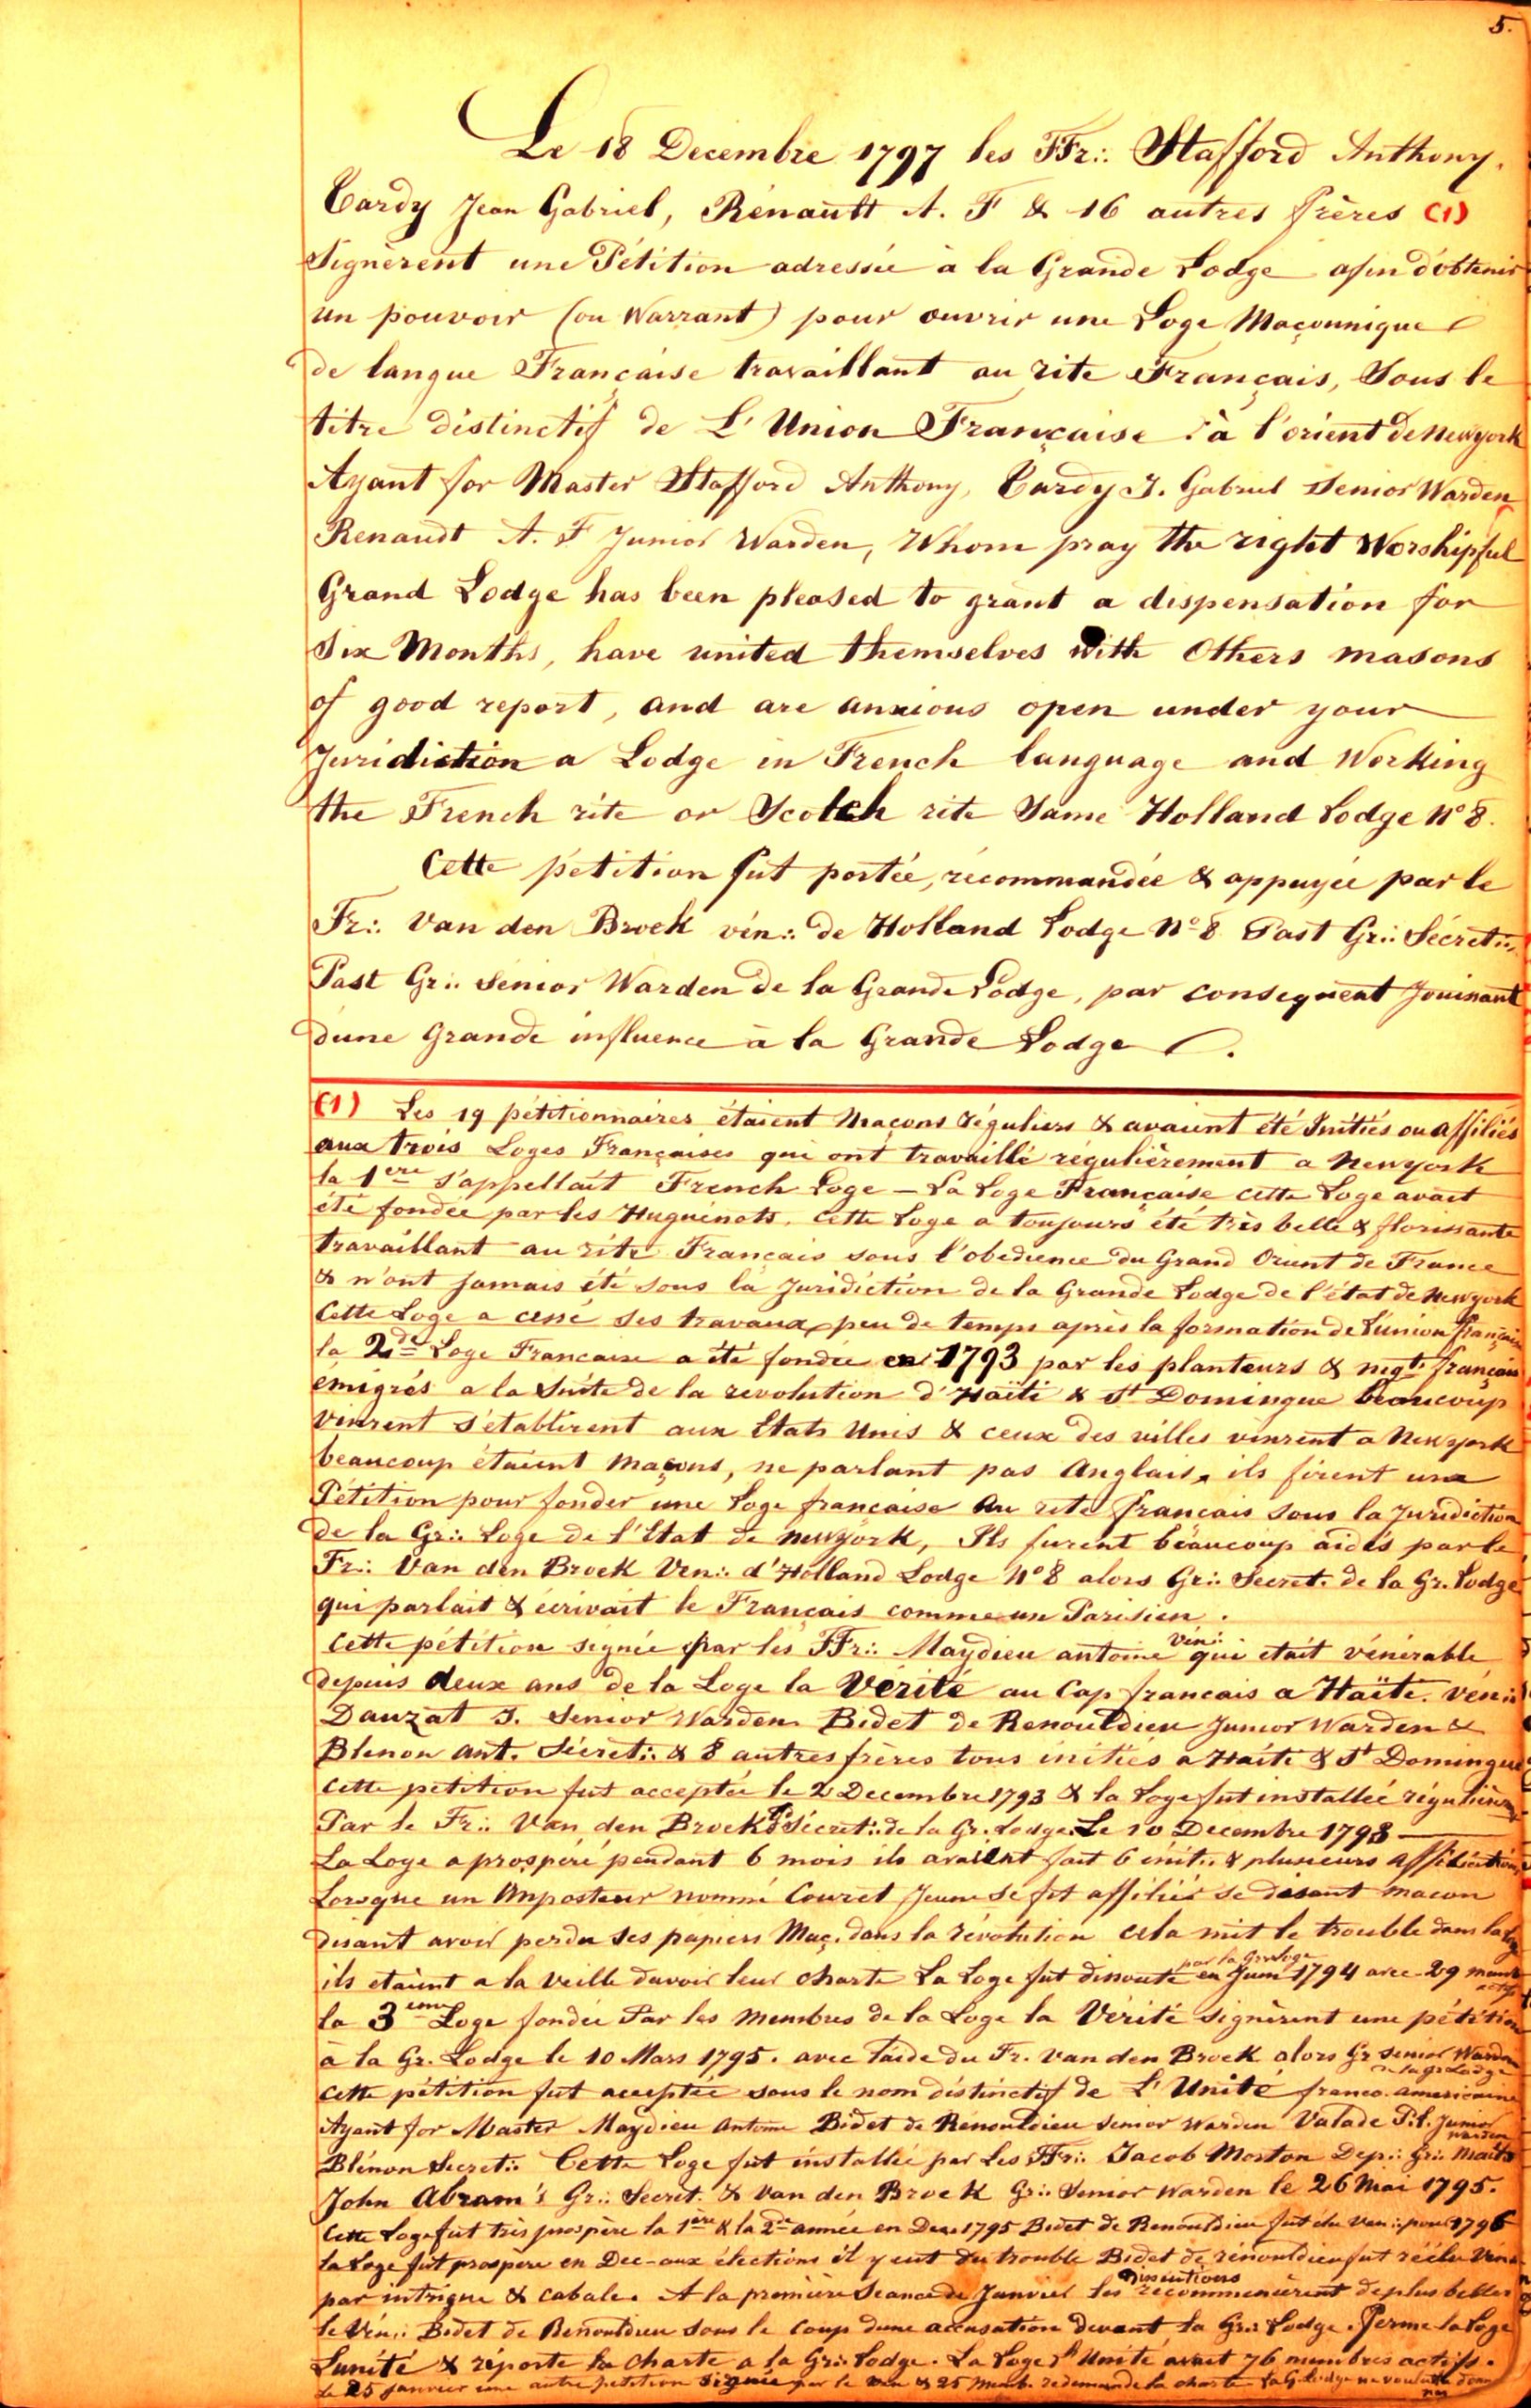 5.
Le 18 Decembre 1797 les FFr∴ Stafford Anthony.
Tardy Jean Gabriel, Rénault A. F & 16 autres frères (1)
Signèrent une Pétition adressée à la Grande Lodge afin d'obtenir
un pouvoir (ou Warrant) pour ouvrir une Loge Maçonnique
de langue Française travaillant au rite Français, Sous le
titre distinctif de L'Union Française à l'orient de Newyork
Ayant for Master Stafford Anthony, Tardy J. Gabriel Senior Warden
Renaudt A. F Junior Warden, Whom pray the right Worshipful
Grand Lodge has been pleased to grant a dispensation for
Six Months, have united themselves with Others masons
of good report, and are anxious open under your
Juridiction a Lodge in French language and Working
the French rite or Scotch rite Same Holland Lodge N° 8.
Cette pétition fut portée, récommandée & appuyée par le
Fr∴ Van den Broek vén∴ de Holland Lodge N° 8 Past Gr∴ Sécret∴
Past Gr∴ Senior Warden de la Grande Lodge, par consequent Jouissant
d'une Grande influence à la Grande Lodge.
(1) Les 19 pétitionnaires étaient Maçons réguliers & avaient été Initiés ou affiliés
aux trois Loges Françaises qui ont travaillé régulièrement a Newyork
la 1ere s'appellait French Loge - La Loge Française cette Loge avait
été fondée par les Huguénots. cette Loge a toujours été très belle & florissante
travaillant au rite Français sous l'obedience du Grand Orient de France
& n'ont jamais été sous la Juridiction de la Grande Lodge de l'état de Newyork
Cette Loge a cessé ses travaux peu de temps après la formation de l'union française
la 2de Loge Francaise a été fondée en 1793 par les planteurs & negts français
émigrés a la Suite de la revolution d'Haïti & St Domingue beaucoup
vinrent s'établirent aux Etats Unis & ceux des villes vinrent a Newyork
beaucoup étaient maçons, ne parlant pas Anglais, ils firent une
Pétition pour fonder une Loge francaise Au rite francais sous la Juridiction
de la Gr∴ Loge de l'Etat de Newyork, Ils furent beaucoup aidés par le
Fr∴ Van den Broek Ven∴ d'Holland Lodge N° 8 alors Gr∴ Secret. de la Gr. Lodge
qui parlait & écrivait le Français comme un Parisien.
Cette pétition signée par les FFr∴ Maydieu antoine vén∴ qui était vénérable
depuis deux ans de la Loge la Vérité au Cap francais a Haïti. vén∴
Dauzat J. Senior Warden Bidet de Renouldieu Junior Warden &
Blenon Ant. Sécret∴ & 8 autres frères tous initiés a Haïti & St Domingue
cette petition fut acceptée le 2 Decembre 1793 & la Loge fut installée régulièremt
Par le Fr∴ Van den Broek Gr Sécret∴ de la Gr. Lodge. Le 10 Decembre 1793
La Loge a prospéré pendant 6 mois ils avaient fait 6 init∴ & plusieurs affiliations
Lorsque un Imposteur nommé Couret Jeune se fit affilier se disant macon
disant avoir perdu ses papiers Maç. dans la révolution cela mit le trouble dans la Log
ils etaient a la veille d'avoir leur charte La Loge fut dissoute par la Gr Loge en Juin 1794 avec 29 memb actifs
la 3eme Loge fondée Par les Membres de la Loge la Vérité signèrent une pétition
à la Gr. Lodge le 10 Mars 1795. avec l'aide du Fr. Van den Broek alors Gr Senior Warden de la gr Lodge
cette pétition fut acceptée sous le nom distinctif de L'Unité franco-americaine
Ayant for Master Maydieu Antoine Bidet de Rénouldieu Senior Warden Valade P.L. Junior Warden
Blénon Secret∴ Cette Loge fut installée par les FFr∴ Jacob Morton Dep∴ Gr∴ Maits
John Abram's Gr∴ Secret. & Van den Broek Gr∴ Senior Warden le 26 Mai 1795.
Cette Loge fut très prospère la 1ère & la 2de année en Dec 1795 Bidet de Renouldieu fut élu Ven∴ pour 1796
la Loge fut prospère en Dec-aux élections il y eut du trouble Bidet de rénouldieu fut réélu Vén∴
par intrigue & cabale. A la première Seance de Janvier les dissentions recommencèrent de plus belles
le Vén∴ Bidet de Renouldieu sous le coup d'une accusation devant la Gr∴ Lodge. Ferme la Loge
L'unité & réporte la charte a la Gr∴ Lodge. La Loge l'Unité avait 76 membres actifs.
Le 25 Janvier une autre petition signée par le Ven & 25 Memb. redemande la charte la G. Lodge ne voulait